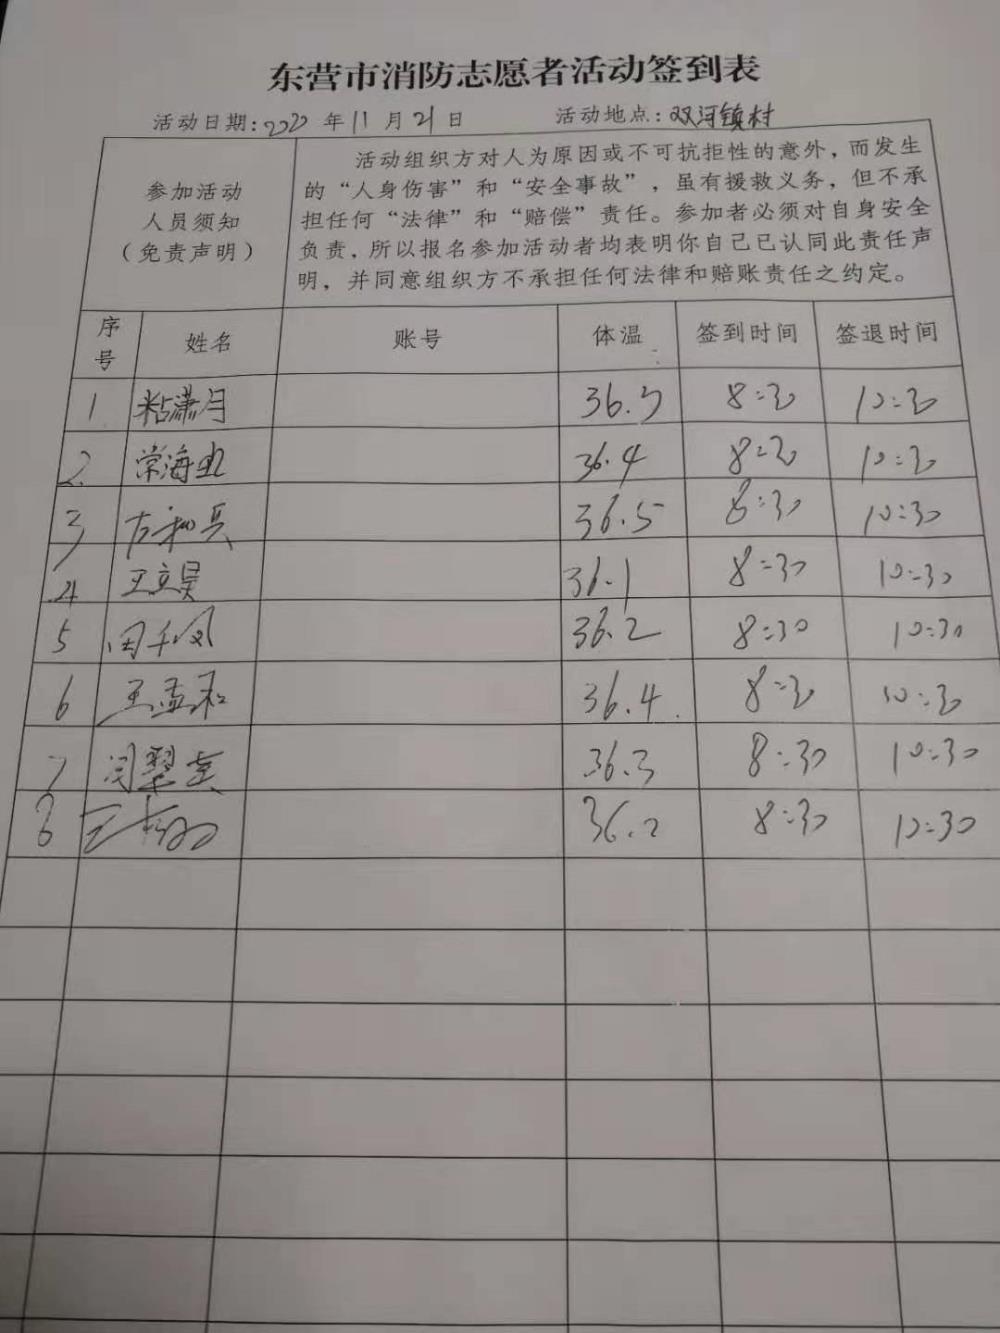 东营市消防志愿者活动签到表
活动日期:2020年11月21日 活动地点:双河镇村
参加活动
人员须知
(免责声明)
活动组织方对人为原因或不可抗拒性的意外,而发生
的“人身伤害”和“安全事故”,虽有援救义务,但不承
担任何“法律”和“赔偿”责任。参加者必须对自身安全
负责,所以报名参加活动者均表明你自己已认同此责任声
明,并同意组织方不承担任何法律和赔账责任之约定。
序号 姓名 账号 体温 签到时间 签退时间
1 粘潇月 36.5 8:30 10:30
2. 常海 36.4 8:30 10:30
3 36.5 8:30 10:30
4 王立昊 36.1 8:30 10:30
5 田千凤 36.2 8:30 10:30
6 王孟和 36.4 8:30 10:30
7 闫翠 36.3 8:30 10:30
8 王 36.2 8:30 10:30